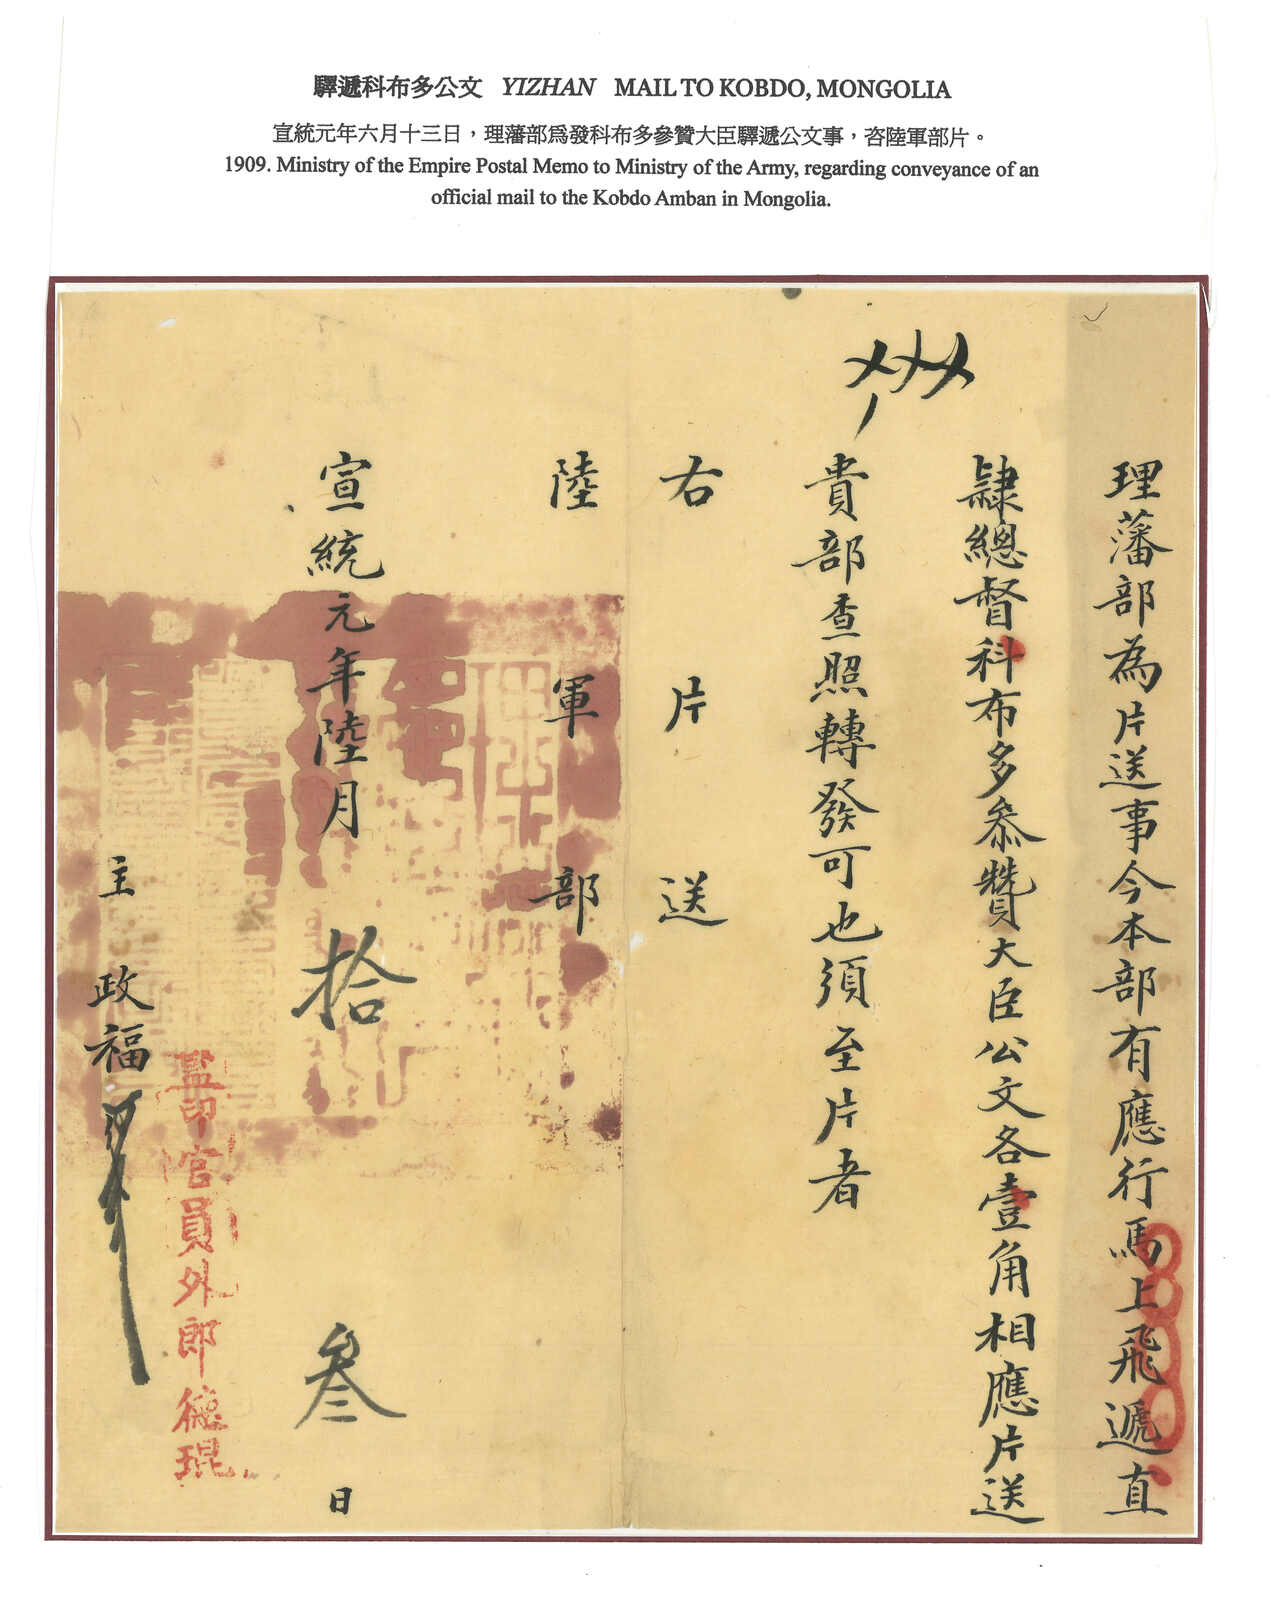 驛遞科布多公文 YIZHAN MAIL TO KOBDO, MONGOLIA
宣統元年六月十三日，理藩部爲發科布多參贊大臣驛遞公文事，咨陸軍部片。
1909. Ministry of the Empire Postal Memo to Ministry of the Army, regarding conveyance of an
official mail to the Kobdo Amban in Mongolia.
理藩部為片送事今本部有應行馬上飛遞直
隸總督科布多叅贊大臣公文各壹角相應片送
貴部查照轉發可也須至片者
右片送
陸軍部
宣統元年陸月拾叁日
監印官員外郎德琨
主政福